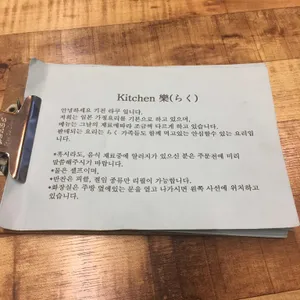 Kitchen 樂(らく)
안녕하세요 키친 라쿠 입니다.
저희는 일본 가정요리를 기본으로 하고 있으며,
메뉴는 그날의 재료에따라 조금씩 다르게 하고 있습니다.
판매되는 요리는 らく 가족들도 함께 먹고있는 안심할수 있는 요리입니다.
*혹시라도, 음식 재료중에 알러지가 있으신 분은 주문전에 미리
말씀해주시기 바랍니다.
*물은 셀프이며,
*반찬은 피클, 절임 종류만 리필이 가능합니다.
*화장실은 주방 옆에있는 문을 열고 나가시면 왼쪽 사선에 위치하고
있습니다.